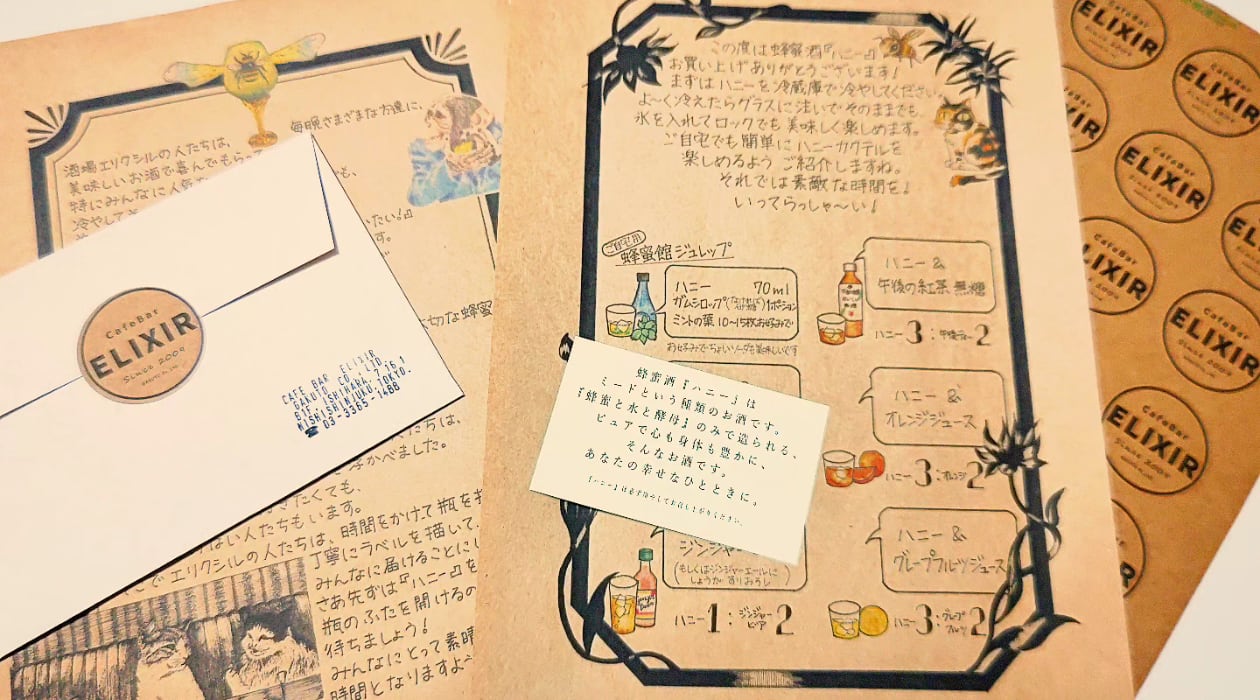 毎晩さまざまな方達に、
酒場エリクシルの人たちは、
美味しいお酒で喜んでもらって
特にみんなに人気
冷やして
も、
いたい!』
す。
大切な蜂蜜
人たちは、
浮かべました。
きたくても、
ない人たちもいます。
エリクシルの人たちは、時間をかけて瓶を
丁寧にラベルを描いて、
みんなに届けることに
さあ先ずは『ハニー』を
瓶のふたを開けるの
待ちましょう!
みんなにとって素晴
時間となりますよ
CafeBar
ELIXIR
SINCE 2009
CAFE BAR ELIXIR
GAKUTO CO.,LTD.
NISHISHINJUKU, TOKYO.
☎ 03-3365-1488
この度は蜂蜜酒『ハニー』
お買い上げありがとうございます!
まずはハニーを冷蔵庫で冷やしてください。
よ〜く冷えたらグラスに注いでそのままでも、
氷を入れてロックでも美味しく楽しめます。
ご自宅でも簡単にハニーカクテルを
楽しめるようご紹介しますね。
それでは素敵な時間を!
いってらっしゃ〜い!
ご自宅用
蜂蜜館ジュレップ
ハニー 70ml
ガムシロップ 1ポーション
ミントの葉 10〜15枚お好みで
お好みでちょいソーダも美味しいです
ハニー&
午後の紅茶 無糖
ハニー3:午後ティー2
ハニー&
オレンジジュース
ハニー3:オレンジ2
ジンジャー
(もしくはジンジャーエールに
しょうが すりおろし)
ハニー1:ジンジャービア2
ハニー&
グレープフルーツジュース
ハニー3:グレープフルーツ2
蜂蜜酒『ハニー』は
ミードという種類のお酒です。
『蜂蜜と水と酵母』のみで造られる、
ピュアで心も身体も豊かに、
そんなお酒です。
あなたの幸せなひとときに。
『ハニー』は必ず冷やしてお召し上がりください。
CafeBar
ELIXIR
SINCE 2009
CafeBar
ELIXIR
CafeBar
ELIXIR
SINCE 2009
CafeBar
ELIXIR
CafeBar
ELIXIR
SINCE 2009
CafeBar
ELIXIR
SINCE 2009